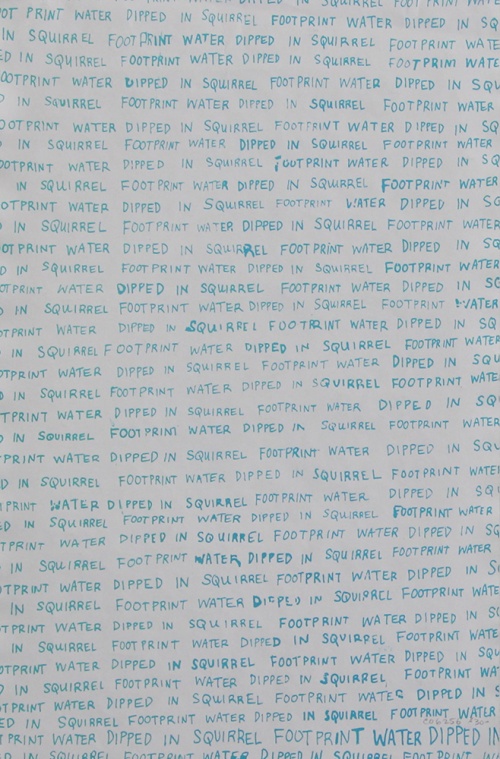 WATER DIPPED IN SQUIRREL FOOTPRINT WATER
PRINT WATER DIPPED IN SQUIRREL FOOTPRINT WATER DIPPED IN
IN SQUIRREL FOOTPRINT WATER DIPPED IN SQUIRREL FOOTPRINT
IN SQUIRREL FOOTPRINT WATER DIPPED IN SQUIRREL FOOTPRINT WATER
FOOTPRINT WATER DIPPED IN SQUIRREL FOOTPRINT WATER DIPPED IN
IN SQUIRREL FOOTPRINT WATER DIPPED IN SQUIRREL FOOTPRINT WATER
FOOTPRINT WATER DIPPED IN SQUIRREL FOOTPRINT WATER DIPPED IN
IN SQUIRREL FOOTPRINT WATER DIPPED IN SQUIRREL FOOTPRINT WATER
WATER DIPPED IN SQUIRREL FOOTPRINT WATER DIPPED IN
IN SQUIRREL FOOTPRINT WATER DIPPED IN SQUIRREL FOOTPRINT WATER
WATER DIPPED IN SQUIRREL FOOTPRINT WATER DIPPED IN
IN SQUIRREL FOOTPRINT WATER DIPPED IN SQUIRREL FOOTPRINT WATER
WATER DIPPED IN SQUIRREL FOOTPRINT WATER DIPPED IN
IN SQUIRREL FOOTPRINT WATER DIPPED IN SQUIRREL FOOTPRINT WATER
WATER DIPPED IN SQUIRREL FOOTPRINT WATER DIPPED IN
IN SQUIRREL FOOTPRINT WATER DIPPED IN SQUIRREL FOOTPRINT WATER
WATER DIPPED IN SQUIRREL FOOTPRINT WATER DIPPED IN
IN SQUIRREL FOOTPRINT WATER DIPPED IN SQUIRREL FOOTPRINT WATER
WATER DIPPED IN SQUIRREL FOOTPRINT WATER DIPPED IN
IN SQUIRREL FOOTPRINT WATER DIPPED IN SQUIRREL FOOTPRINT WATER
WATER DIPPED IN SQUIRREL FOOTPRINT WATER DIPPED IN
IN SQUIRREL FOOTPRINT WATER DIPPED IN SQUIRREL FOOTPRINT WATER
PRINT WATER DIPPED IN SQUIRREL FOOTPRINT WATER DIPPED IN
IN SQUIRREL FOOTPRINT WATER DIPPED IN SQUIRREL FOOTPRINT WATER
PRINT WATER DIPPED IN SQUIRREL FOOTPRINT WATER DIPPED IN
IN SQUIRREL FOOTPRINT WATER DIPPED IN SQUIRREL FOOTPRINT WATER
WATER DIPPED IN SQUIRREL FOOTPRINT WATER DIPPED IN
IN SQUIRREL FOOTPRINT WATER DIPPED IN SQUIRREL FOOTPRINT WATER
WATER DIPPED IN SQUIRREL FOOTPRINT WATER DIPPED IN
IN SQUIRREL FOOTPRINT WATER DIPPED IN SQUIRREL FOOTPRINT
WATER DIPPED IN SQUIRREL FOOTPRINT WATER DIPPED IN
IN SQUIRREL FOOTPRINT WATER DIPPED IN SQUIRREL FOOTPRINT
WATER DIPPED IN SQUIRREL FOOTPRINT WATER DIPPED IN
IN SQUIRREL FOOTPRINT WATER DIPPED IN SQUIRREL FOOTPRINT
WATER DIPPED IN SQUIRREL FOOTPRINT WATER DIPPED IN
IN SQUIRREL FOOTPRINT WATER DIPPED IN SQUIRREL FOOTPRINT WATER
PRINT WATER DIPPED IN SQUIRREL FOOTPRINT WATER DIPPED IN
IN SQUIRREL FOOTPRINT WATER DIPPED IN SQUIRREL FOOTPRINT